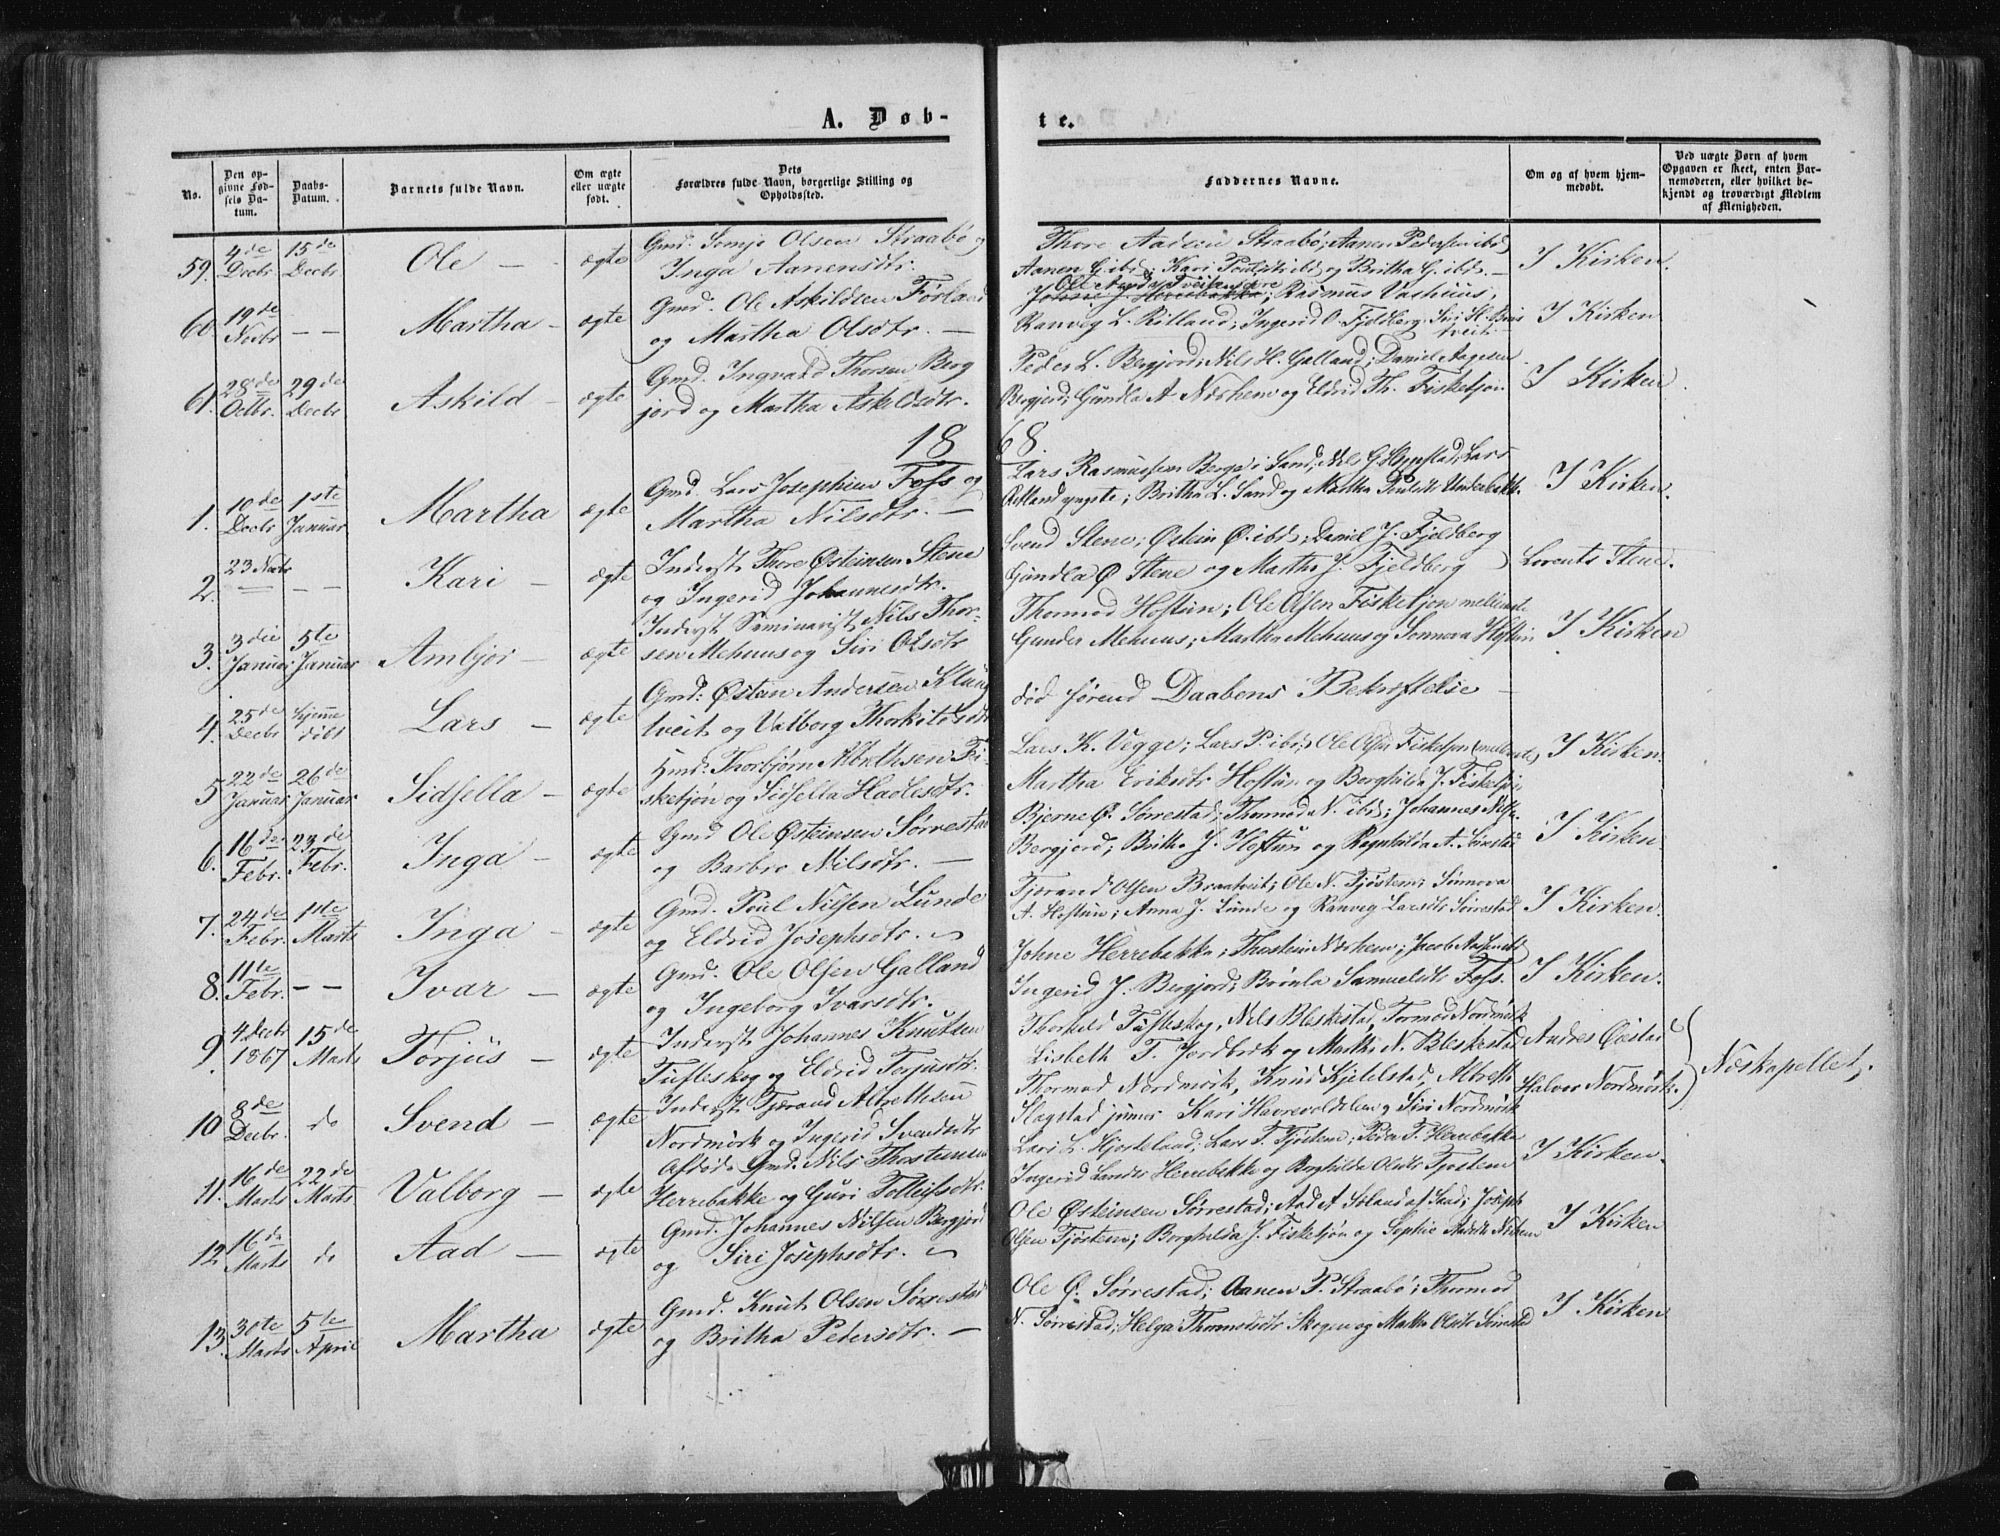 A. Døb-
te.
No.
Den opgivne Fødsels Datum.
Daabs-Datum.
Barnets fulde Navn.
Om ægte eller uægte født.
Dets Forældres fulde Navn, borgerlige Stilling og Opholdssted.
Faddernes Navne.
Om og af hvem hjemmedøbt.
Ved uægte Børn af hvem Opgaven er skeet, enten Barnemoderen, eller hvilket bekjendt og troværdigt Medlem af Menigheden.
59. 4de Decbr 15de Decbr Ole – ægte Gmd. Olsen Straabø og
Inga Aanensdtr.
Thore Aadsen Straabø; Aanen Pedersen ibd
Aanen G. ibd; Kari Poulsdtr ibd og Britha G. ibd. – I Kirken.
60. 19de Novbr – – Martha – ægte Gmd. Ole Askildsen Førland
og Martha Olsdtr. –
Johne J. Herrebakke; Rasmus Vashuus,
Ranveig L. Rilland; Ingerid O. Fjeldberg; I Kirken
61. 28de Octbr. 29de Decbr Askild – ægte Gmd. Ingvald Thorsen Berg
jord og Martha Askildsdtr.
Peder L. Bergjord; Nils H. Galland; Daniel Aagesen
Bergjord; Gundla A. Næshem og Eldrid Th. Fisketjøn. I Kirken
1868.
1. 10de Decbr 1ste Januar Martha ægte Gmd. Lars Josephsen Foss og
Martha Nilsdtr. –
Lars Rasmussen Berge i Sand; Nils G. Lars
yngste; Britha L. Sand og Martha I Kirken.
2. 23 Novbr – – Kari – ægte Inderst Thore Østeinsen Stene
og Ingerid Johannesdtr.
Svend Stene; Østein Ø. ibd; Daniel J. Fjeldberg
Gundla Ø. Stene og Martha J. Fjeldberg Lorents Stene.
3. 3die Januar 5te Januar Ambjør – ægte Inderst Seminarist Nils Thor-
sen Mehuus og Siri Olsdtr
Thormod Hoftun; Ole Olsen Fisketjøn melleimste
Gunder Mehuus; Martha Mehuus og Sonnova Hoftun I Kirken
4. 25de Decbr hjemme døbt Lars – ægte Gmd: Østen Andersen Klung
tveit og Valborg Thorkildsdtr
død førend Daabens Bekræftelse –
5 22de Januar 26de Januar Sidsella – ægte Hmd: Thorbjørn Albrethsen Fi-
sketjøn og Sidsella Hadlesdtr.
Lars K. Vegge; Lars P. ibd; Ole Olsen Fisketjøn
Martha Eriksdtr Hoftun og Borghilda J. Fisketjøn I Kirken.
6. 16de Febr. 23de Febr. Inga – ægte Gmd Ole Østeinsen Sørrestad
og Barbro Nilsdtr. –
Bjerne Ø. Sørrestad; Thormod N. ibd; Johannes Nilsen
Bergjord; Britha J. Hoftun og Ragnhilda A. Sørrestad I Kirken
7. 24de Febr. 1ste Marts Inga – ægte Gmd. Poul Nilsen Lunde
og Eldrid Josephsdtr.
Tjærand Olsen Braatveit; Ole N. Tjøstem; Sonnova
A. Hoftun; Anna J. Lunde og Ranveg Larsdtr Sørrestad I Kirken.
8. 11te Febr. – – Ivar – ægte Gmd. Ole Olsen Galland
og Ingeborg Ivarsdtr.
Johne Herrebakke; Thorstein Næshem; Jacob
Ingerid J. Bergjord; Samuelsdtr Foss. I Kirken.
9. 4 Decbr 1867 15de Marts Torjus – ægte Inderst Johannes Knutsen
Tufteskog og Eldrid Torjusdtr.
Thorkild Tufteskog, Nils Bleskestad, Tormod Nordmork
Lisbeth T. Jordbrek og Martha N. Bleskestad Andres
10 8de Decbr. do Svend – ægte Inderst Tjærand Albrethsen
Nordmork og Ingerid Svendsdtr
Thormod Nordmork, Knud Kjetelstad, Albreth
Slagstad junior Kari og Siri Nordmork Halvor Nordmork. Næskapellet,
11. 16de Marts 22de Marts Valborg – ægte Afdøde Gmd. Nils Thorsteinsen
Herrebakke og Guri Tolleifsdtr.
Lars L. Hjorteland; Lars T. Tjøstem; Peder T. Herrebakke
Ingerid Herrebakke og Borghilda Olsdtr Tjøstem I Kirken.
12 16de Marts do Aad – ægte Gmd. Johannes Nilsen Bergjord
og Siri Josephsdtr.
Ole Østeinsen Sørrestad; Aad A. af Sand; Joseph
Olsen Tjøstem; Borghilda J. Fisketjøn og Sophie I Kirken
13. 30te Marts 5te April Martha ægte Gmd. Knut Olsen Sørrestad
og Britha Petersdtr. –
Ole Ø. Sørrestad; Aanen P. Straabø; Thormod
N. Sørrestad; Helga Skogen og Martha Olsdtr Sørrestad I Kirken